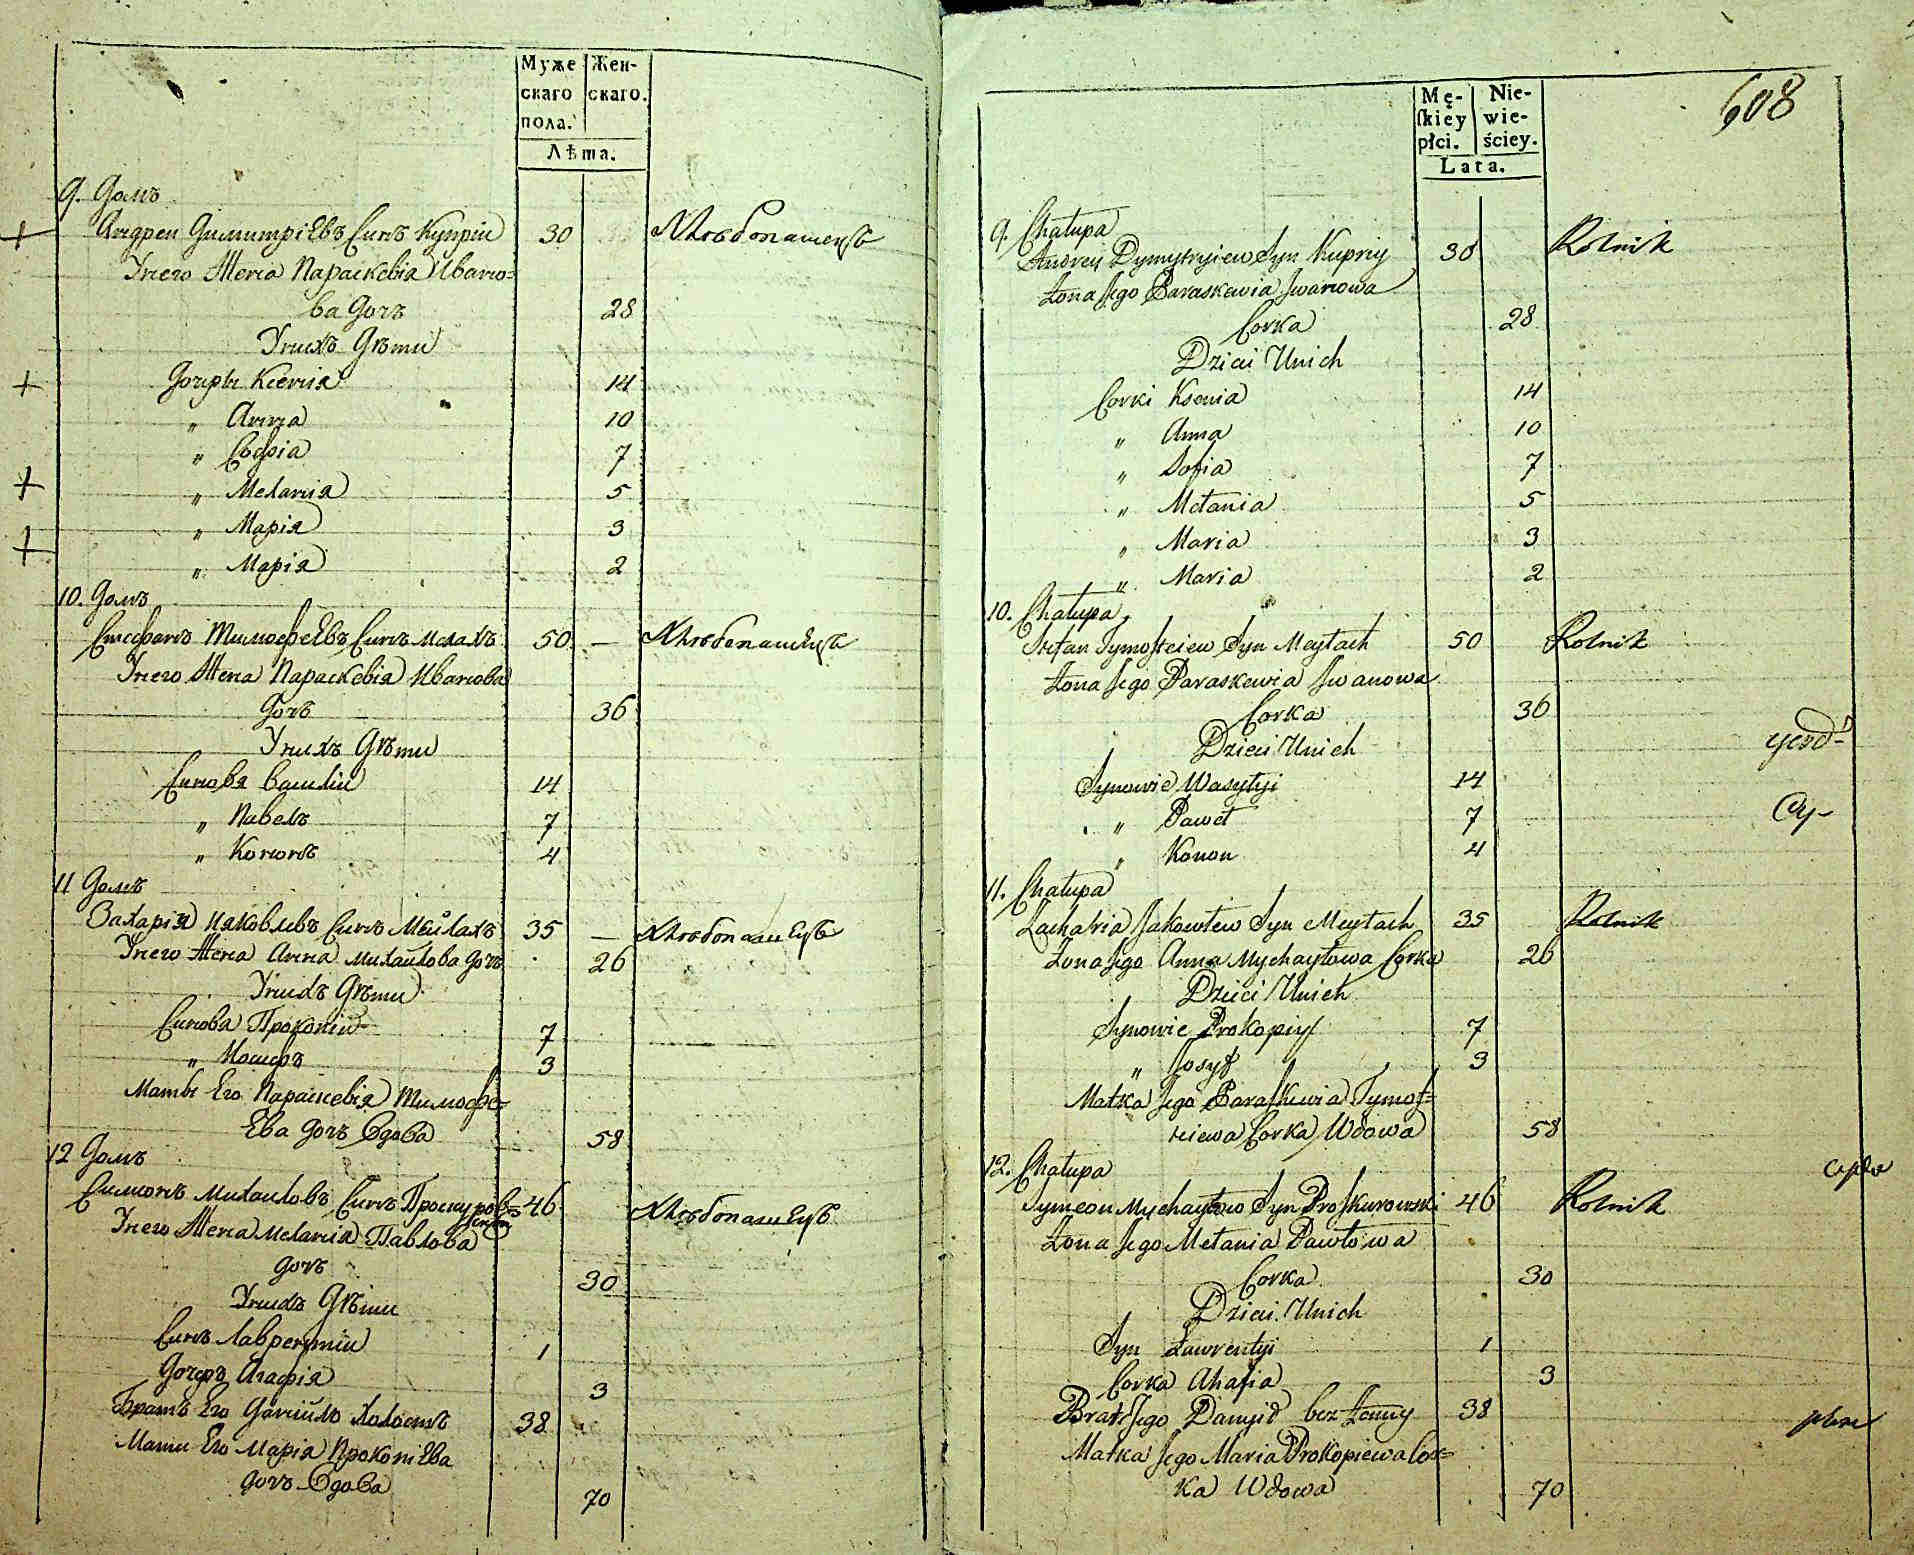 Муже
скаго
пола.
Жен-
скаго.
Лѣта.
9. Домъ
Андреи Димитріевъ Синъ Купріи 30 Хлѣбопашецъ
Унего Жена Параскевія Ивано=
ва Дочъ 28
Унихъ Дѣти
Дочеры Ксенія 14
„ Анна 10
„ Софія 7
„ Меланія 5
„ Марія 3
„ Марія 2
10. Домъ
Стефанъ Тимофеевъ Синъ 50 — Хлѣбопашецъ
Унего Жена Параскевія Иванова
Дочъ 36
Унихъ Дѣти
Синовя Василіи 14
„ Павелъ 7
„ Кононъ 4
11 Домъ
ЗахаріяИяковлевъ Синъ Мейлахъ 35 — Хлѣбопашецъ
Унего Жена Анна Михаилова Дочъ 26
Унихъ Дѣти
Синова Прокопіи 7
„ Иосифъ 3
Маты Его Параскевія Тимофе=
Ева Дочъ Вдова 58
12 Домъ
Симионъ Михаиловъ Синъ Проскуров= 46 Хлѣбопашецъ
Унего Жена Меланія Павлова
Дочъ 30
Унихъ Дѣти
Синъ Лаврентіи 1
Дочеръ Агафія 3
Братъ Его Даніилъ Холостъ 38
Мати Его Марія Прокопіева
Дочъ Вдова 70
608
Mę-
ſkiey
płci.
Nie-
wie-
ściey.
Lata.
9. Chałupa
Andrey Dymytryiew Syn Kupriy 30 Rolnik
Żona Jego Paraskewia Iwanowa
Corka 28
Dzieci Unich
Corki Ksenia 14
„ Anna 10
„ Sofia 7
„ Mełania 5
„ Maria 3
„ Maria 2
10. Chałupa
Stefan Tymofteiew Syn Meyłach 50 Rolnik
Żona Jego Paraskewia Iwanowa
Corka 36
Dzieci Unich
Synowie Wasylyi 14
„ Paweł 7
„ Konon 4
11. Chałupa
Zacharia Jakowlew Syn Meyłach 35 Rolnik
Żona Jego Anna Mychayłowa Corka 26
Dzieci Unich
Synowie Prokopiy 7
„ Josyf 3
Matka Jego Paraſkewia Tymof=
teiewa Corka Wdowa 58
12. Chałupa
Symeon Mychayłow Syn Proſkurowski 46 Rolnik
Żona Jego Mełania Pawłowa
Corka 30
Dzieci Unich
Syn Ławrentyi 1
Corka Ahafia 3
Brat Jego Danyił bez Żenny 38
Matka Jego Maria Prokopiewa Cor=
ka Wdowa 70